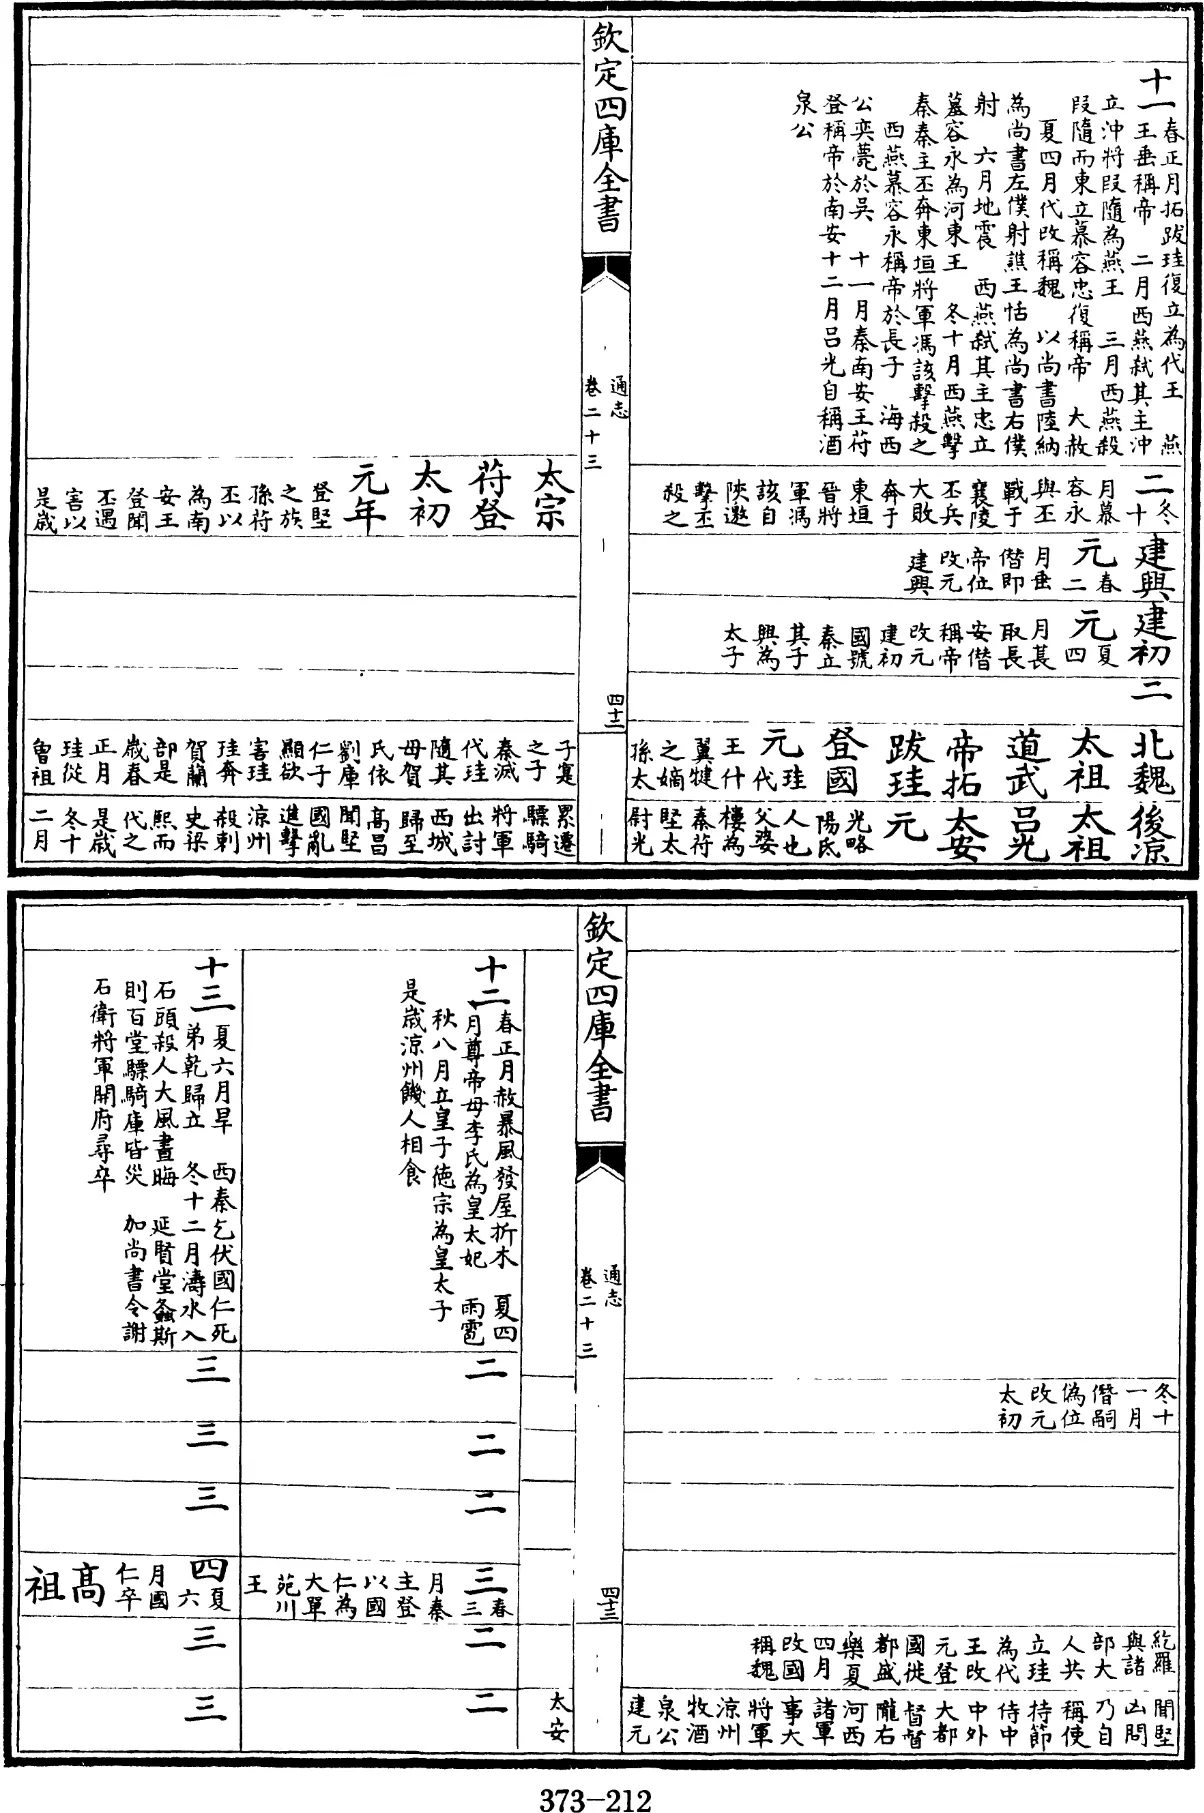 十一春正月拓跋珪復立為代王　燕
王垂稱帝　二月西燕弑其主沖
立沖將段隨為燕王　三月西燕殺
段隨而東立慕容忠復稱帝　大赦
夏四月代改稱魏　以尚書陸納
為尚書左僕射譙王恬為尚書右僕
射　六月地震　西燕弑其主忠立
慕容永為河東王　冬十月西燕擊
秦秦主丕奔東垣將軍馮該擊殺之
西燕慕容永稱帝於長子　海西
公奕薨於吳　十一月秦南安王苻
登稱帝於南安十二月呂光自稱酒
泉公
二冬十
月慕
容永
與丕
戰于
襄陵
丕兵
大敗
奔于
東垣
晉將
軍馮
該自
陝邀
擊丕
殺之
建興
元春二
月垂
僭即
帝位
改元
建興
建初
元夏四
月萇
取長
安僭
稱帝
改元
建初
國號
秦立
其子
興為
太子
二
北魏
太祖
道武
帝拓
跋珪
登國
元珪代
王什
翼犍
之嫡
孫太
後涼
太祖
呂光
太安
元光略
陽氐
人也
父婆
樓為
秦苻
堅太
尉光
欽定四庫全書
通志
卷二十三
四十二
太宗
苻登
太初
元年
登堅
之族
孫苻
丕以
為南
安王
登聞
丕遇
害以
是歲
子寔
之子
秦滅
代珪
隨其
母賀
氏依
劉庫
仁仁子
顯欲
害珪
珪奔
賀蘭
部是
歲春
正月
珪從
曾祖
累遷
驃騎
將軍
出討
西域
歸至
髙昌
聞堅
國亂
進擊
涼州
殺刺
史梁
熙而
代之
是歲
冬十
二月
冬十
一月
僭嗣
偽位
改元
太初
紇羅
與諸
部大
人共
立珪
為代
王改
元登
國徙
都盛
樂夏
四月
改國
稱魏
聞堅
凶問
乃自
稱使
持節
侍中
中外
大都
督督
隴右
河西
諸軍
事大
將軍
涼州
牧酒
泉公
建元
欽定四庫全書
通志
卷二十三
四十三
太安
十二春正月赦暴風發屋折木　夏四
月尊帝母李氏為皇太妃　雨雹
秋八月立皇子徳宗為皇太子
是歲涼州饑人相食
二
二
二
三春三
月秦
主登
以國
仁為
大單
苑川
王
二
二
十三夏六月旱　西秦乞伏國仁死
弟乾歸立　冬十二月濤水入
石頭殺人大風晝晦　延賢堂螽斯
則百堂驃騎庫皆災　加尚書令謝
石衛將軍開府尋卒
三
三
三
四夏六
月國
仁卒
髙
祖
三
三
373-212